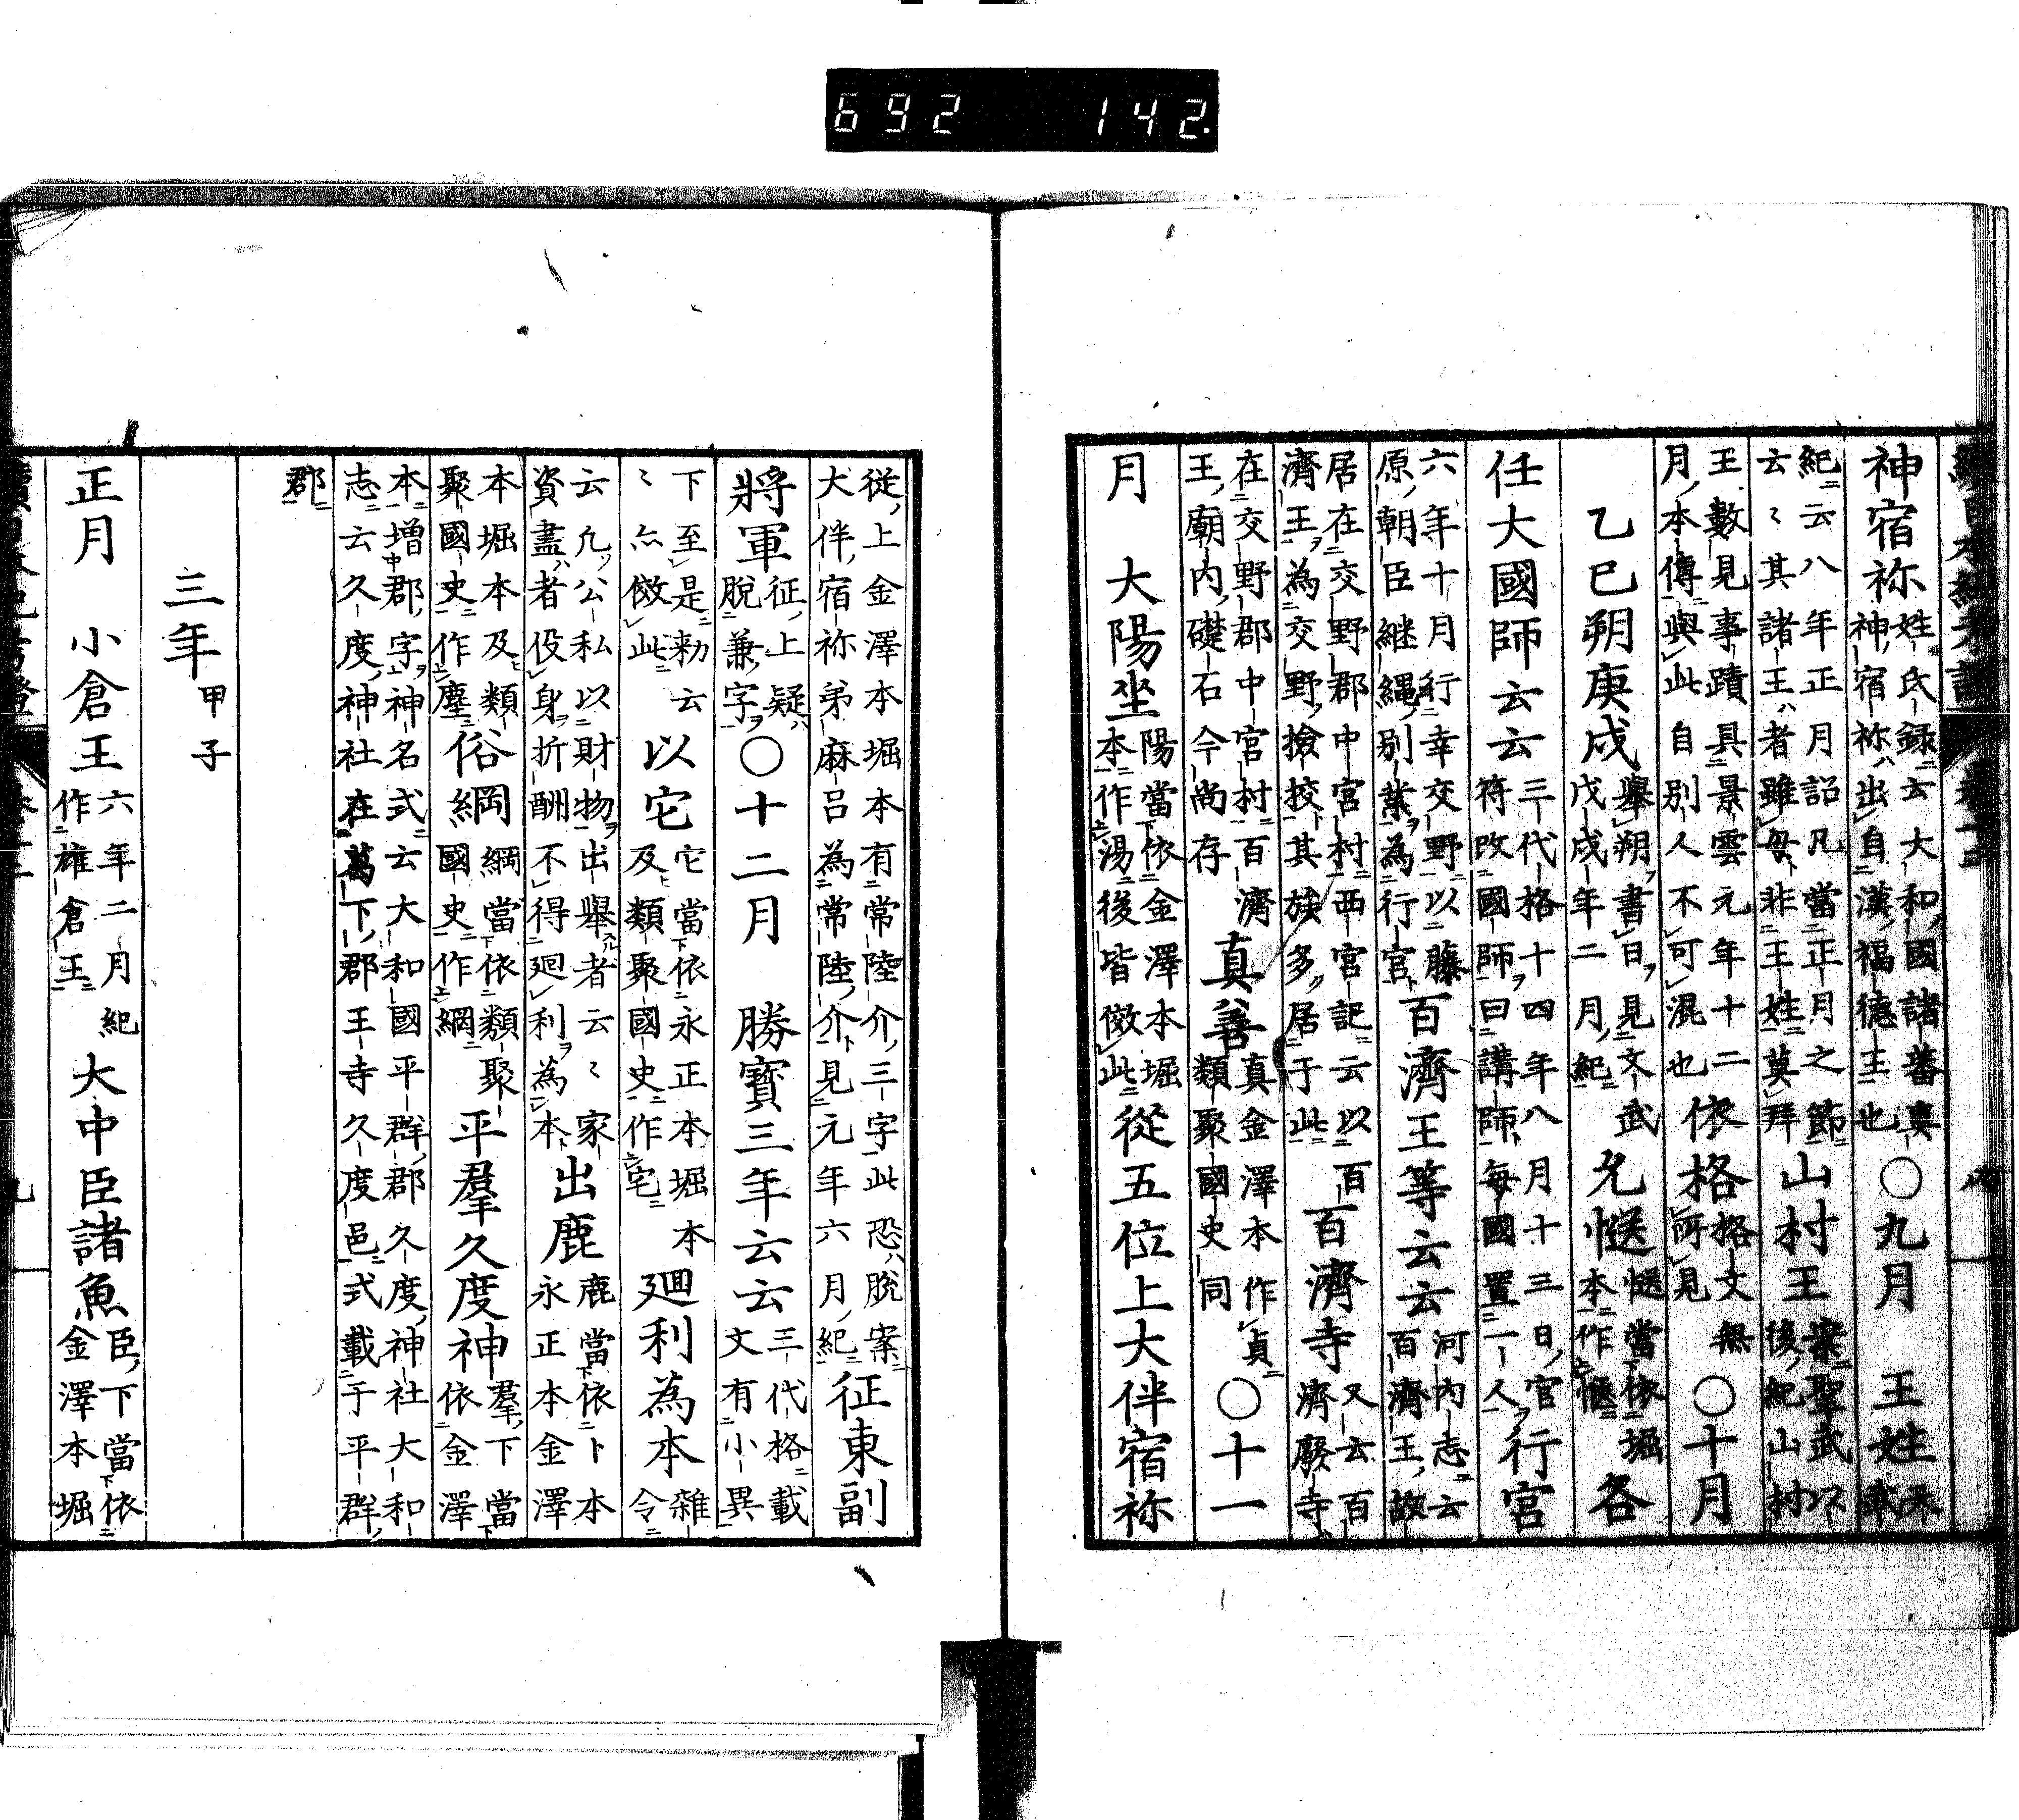 692 142.
神宿祢姓氏録云大和國諸蕃真
神宿祢出自漢福德王也○九月 王姓本
紀云八年正月詔凡當正月之節
云〻其諸王者雖母非王姓莫拜山村王案聖武以
後紀山村
王數見事蹟具景雲元年十二
月本傳與此自別人不可混也依格格文無
所見○十月
乙巳朔庚戌舉朔書日見文武
戊戌年二月紀允愻愻當依堀
本作愜各
任大國師云云三代格十四年八月十三日官
符改國師曰講師每國置一人行宮
六年十月行幸交野以藤
原朝臣継縄別業為行宮百濟王等云云河内志云
百濟王故
居在交野郡中宮村西宮記云以百
濟王為交野撿挍其族多居于此百濟寺又云百
濟廢寺
在交野郡中宮村百濟
王廟内礎石今尚存真善真金澤本作貞
類聚國史同○十一
月 大陽坐陽當依金澤本堀
本作湯後皆倣此從五位上大伴宿祢
從上金澤本堀本有常陸介三字此恐脫案
大伴宿祢弟麻呂為常陸介見元年六月紀征東副
將軍征上疑
脫兼字○十二月 勝寶三年云云三代格載
文有小異
下至是勅云
〻亦倣此以宅宅當依永正本堀本
及類聚國史作宅廻利為本雜
令
云凢公私以財物出舉者云〻家
資盡者役身折酬不得廻利為本出鹿鹿當依卜本
永正本金澤
本堀本及類
聚國史作塵俗綱綱當依類聚
國史作網平羣久度神羣下當
依金澤
本增郡字神名式云大和國平群郡久度神社大和
志云久度神社在葛下郡王寺久度邑式載于平群
郡
三年甲子
正月 小倉王六年二月紀
作雄倉王大中臣諸魚臣下當依
金澤本堀